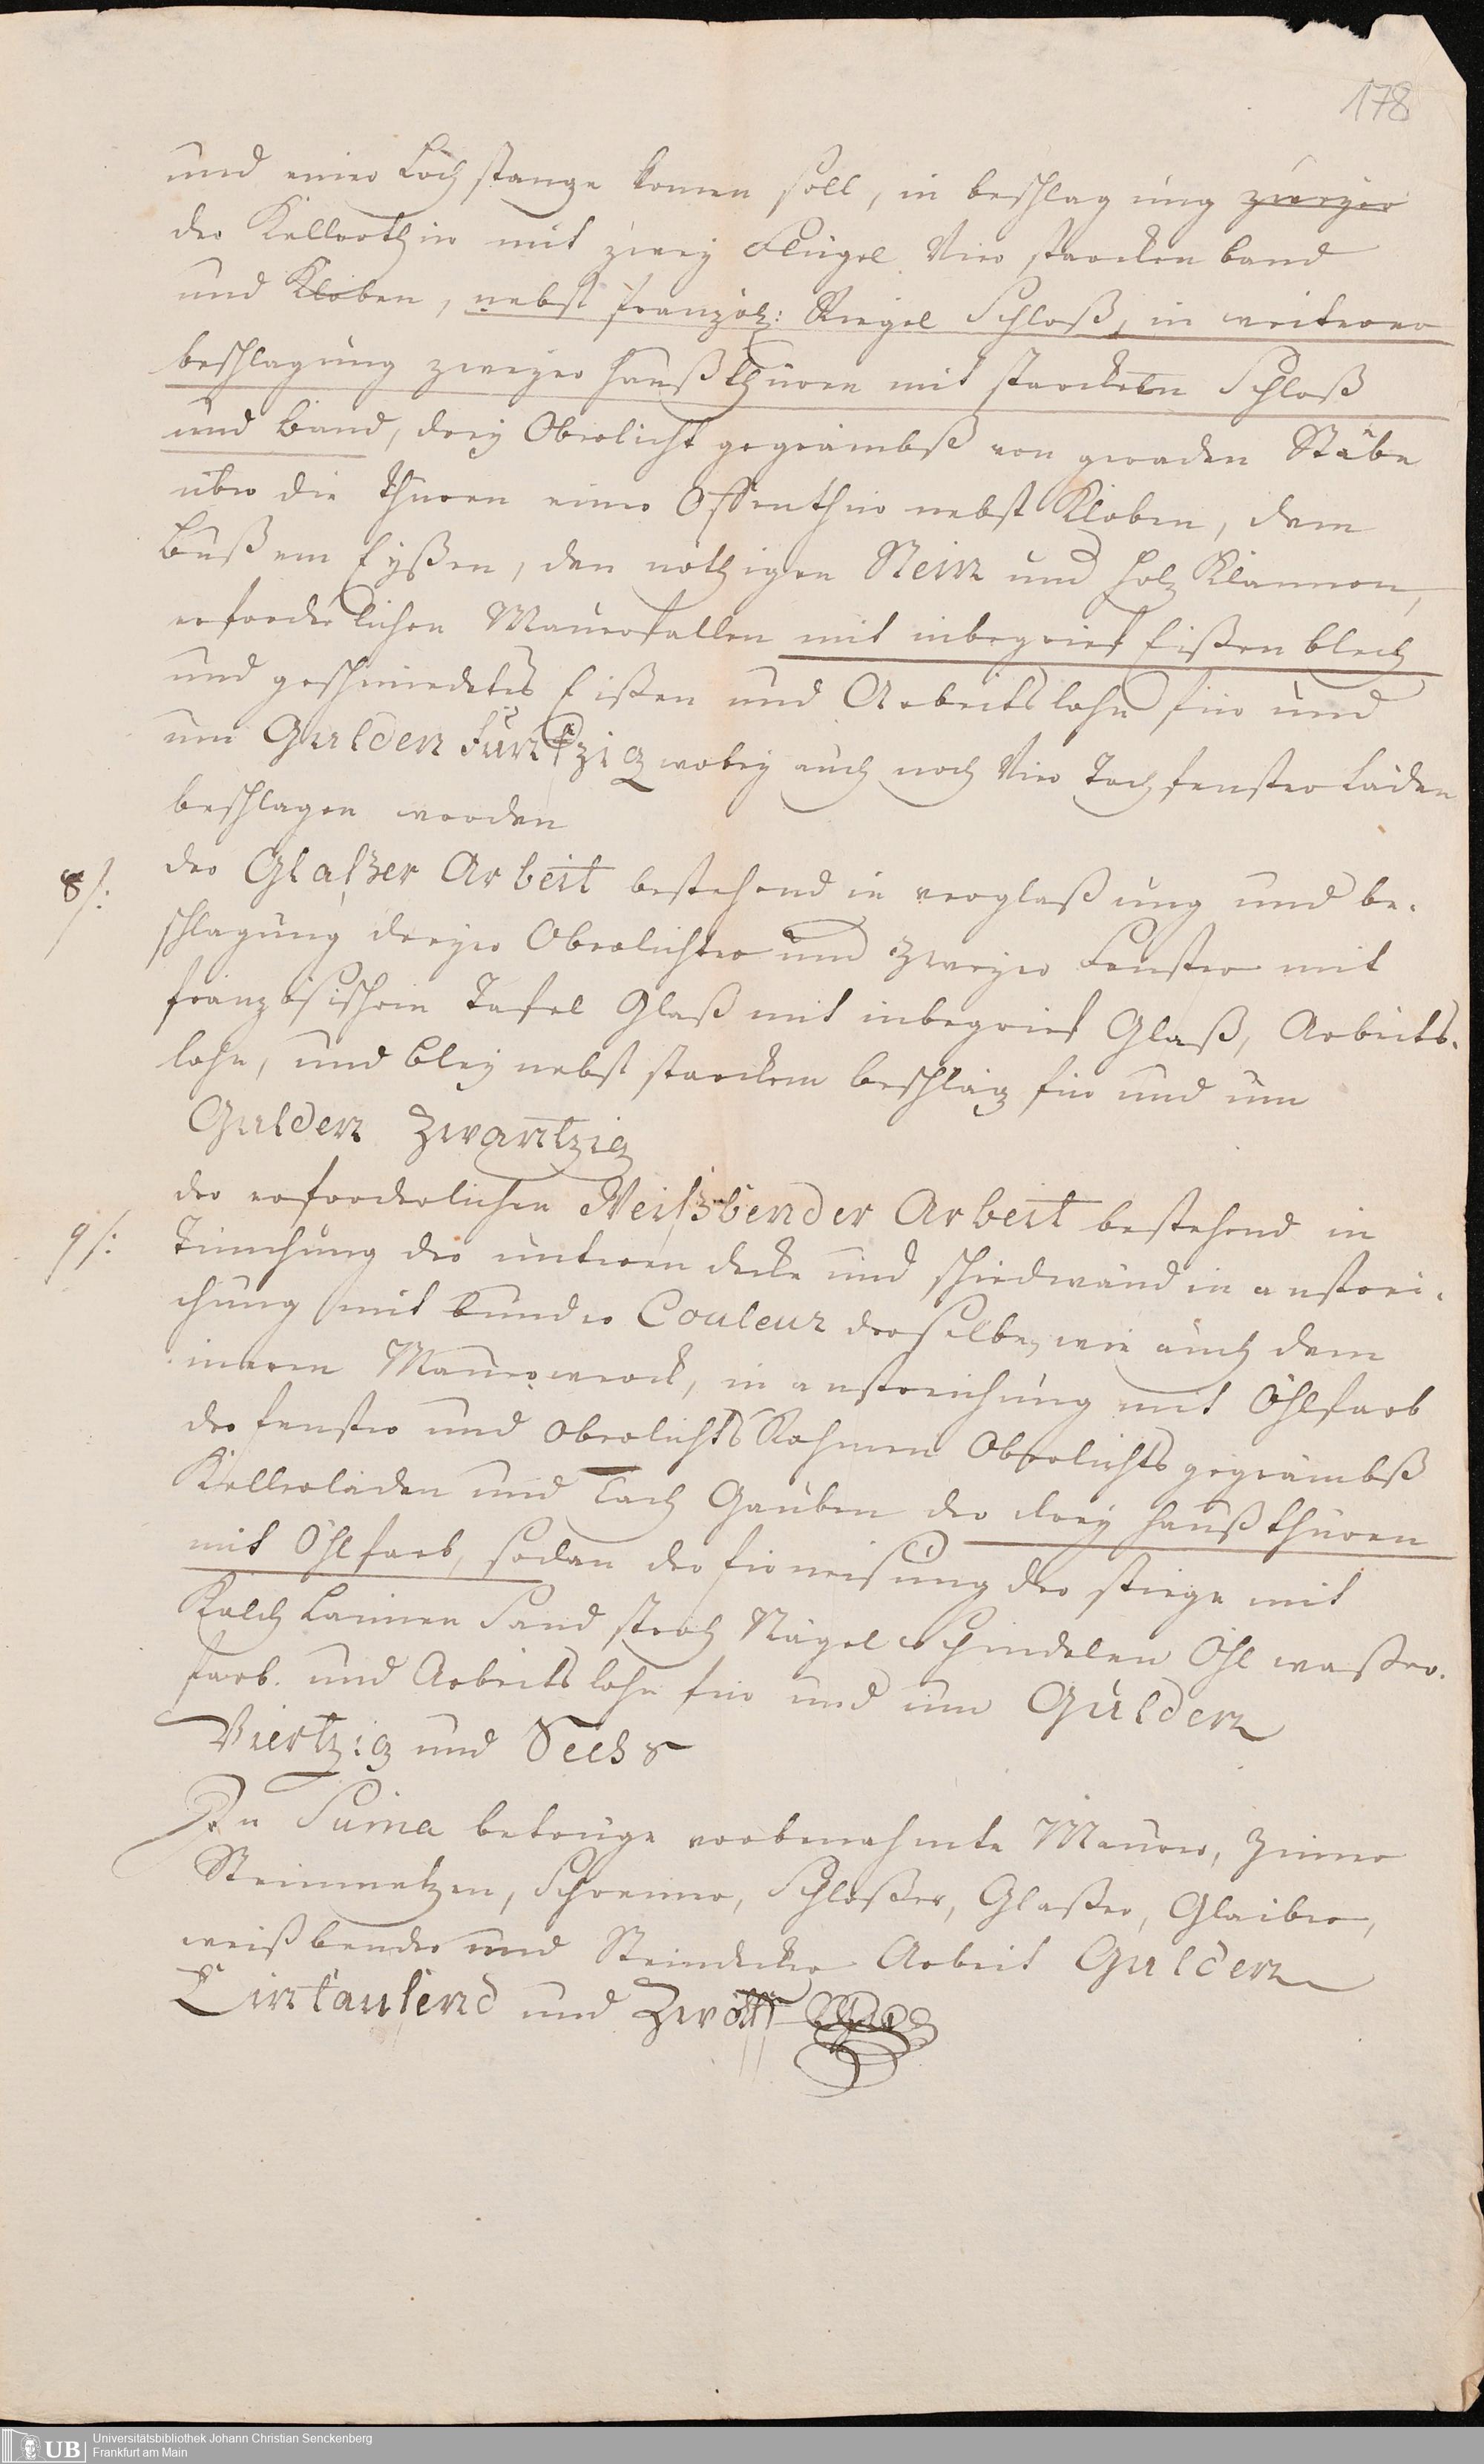 178
und einer Loch stange komen soll, in beschlagung zweyer
der Kellerthür mit zwey Flügel Vier starcken band
und Kloben, nebst französ: Riegel Schloß, in weiterer
beschlagung zweyer Haußthüren mit starcken Schloß
und Band, drey Oberlicht gegrämbß von geraden Stäbe
über die Thüren einer Offenthür nebst Kloben, dem
Bußem Eyßen, den nöthigen Stein und Holz Klammen,
erforderlichen Mauerfallen mit inbegrief Eißen blech
und geschmiedetes Eißen und Arbeitslohn für und
um Gulden Funfzig wobey auch noch Vier Dachfenster Läden
beschlagen werden
8/: der Glaßer Arbeit bestehend in verglaßung und be-
schlagung dreyer Oberlichter und zweyer Fenster mit
französischem Tafel Glaß mit inbegrief Glaß, Arbeits-
lohn, und bley nebst starckem beschläg für und um
Gulden Zwantzig
9/: der erforderlichen Weißbender Arbeit bestehend in
Tünchung der unteren decke und schiedwänd in anstrei-
chung mit bunder Couleur derselben, wie auch dem
inneren Mauerwerck, in anstreichung mit Öhlfarb
der fenster und oberlichts Rahmen Oberlichts gegrämbß
Kellerläden und Dach Gauben der drey Haußthüren
mit Öhlfarb, sodan der firneisung der stiege mit
Kalch Laimen Sand stroh Nägel Schindelen Öhl waßer-
farb. und Arbeitslohn für und um Gulden
Viertzig und Sechs
In Suma betrüge vorbenahmte Maurer, Zimer
Steinmetzen, Schreiner, Schloßer, Glaßer, Glaiber,
weißbender und Steindecker Arbeit Gulden
Eintausend und Zwölf
Universitätsbibliothek Johann Christian Senckenberg
Frankfurt am Main
UB